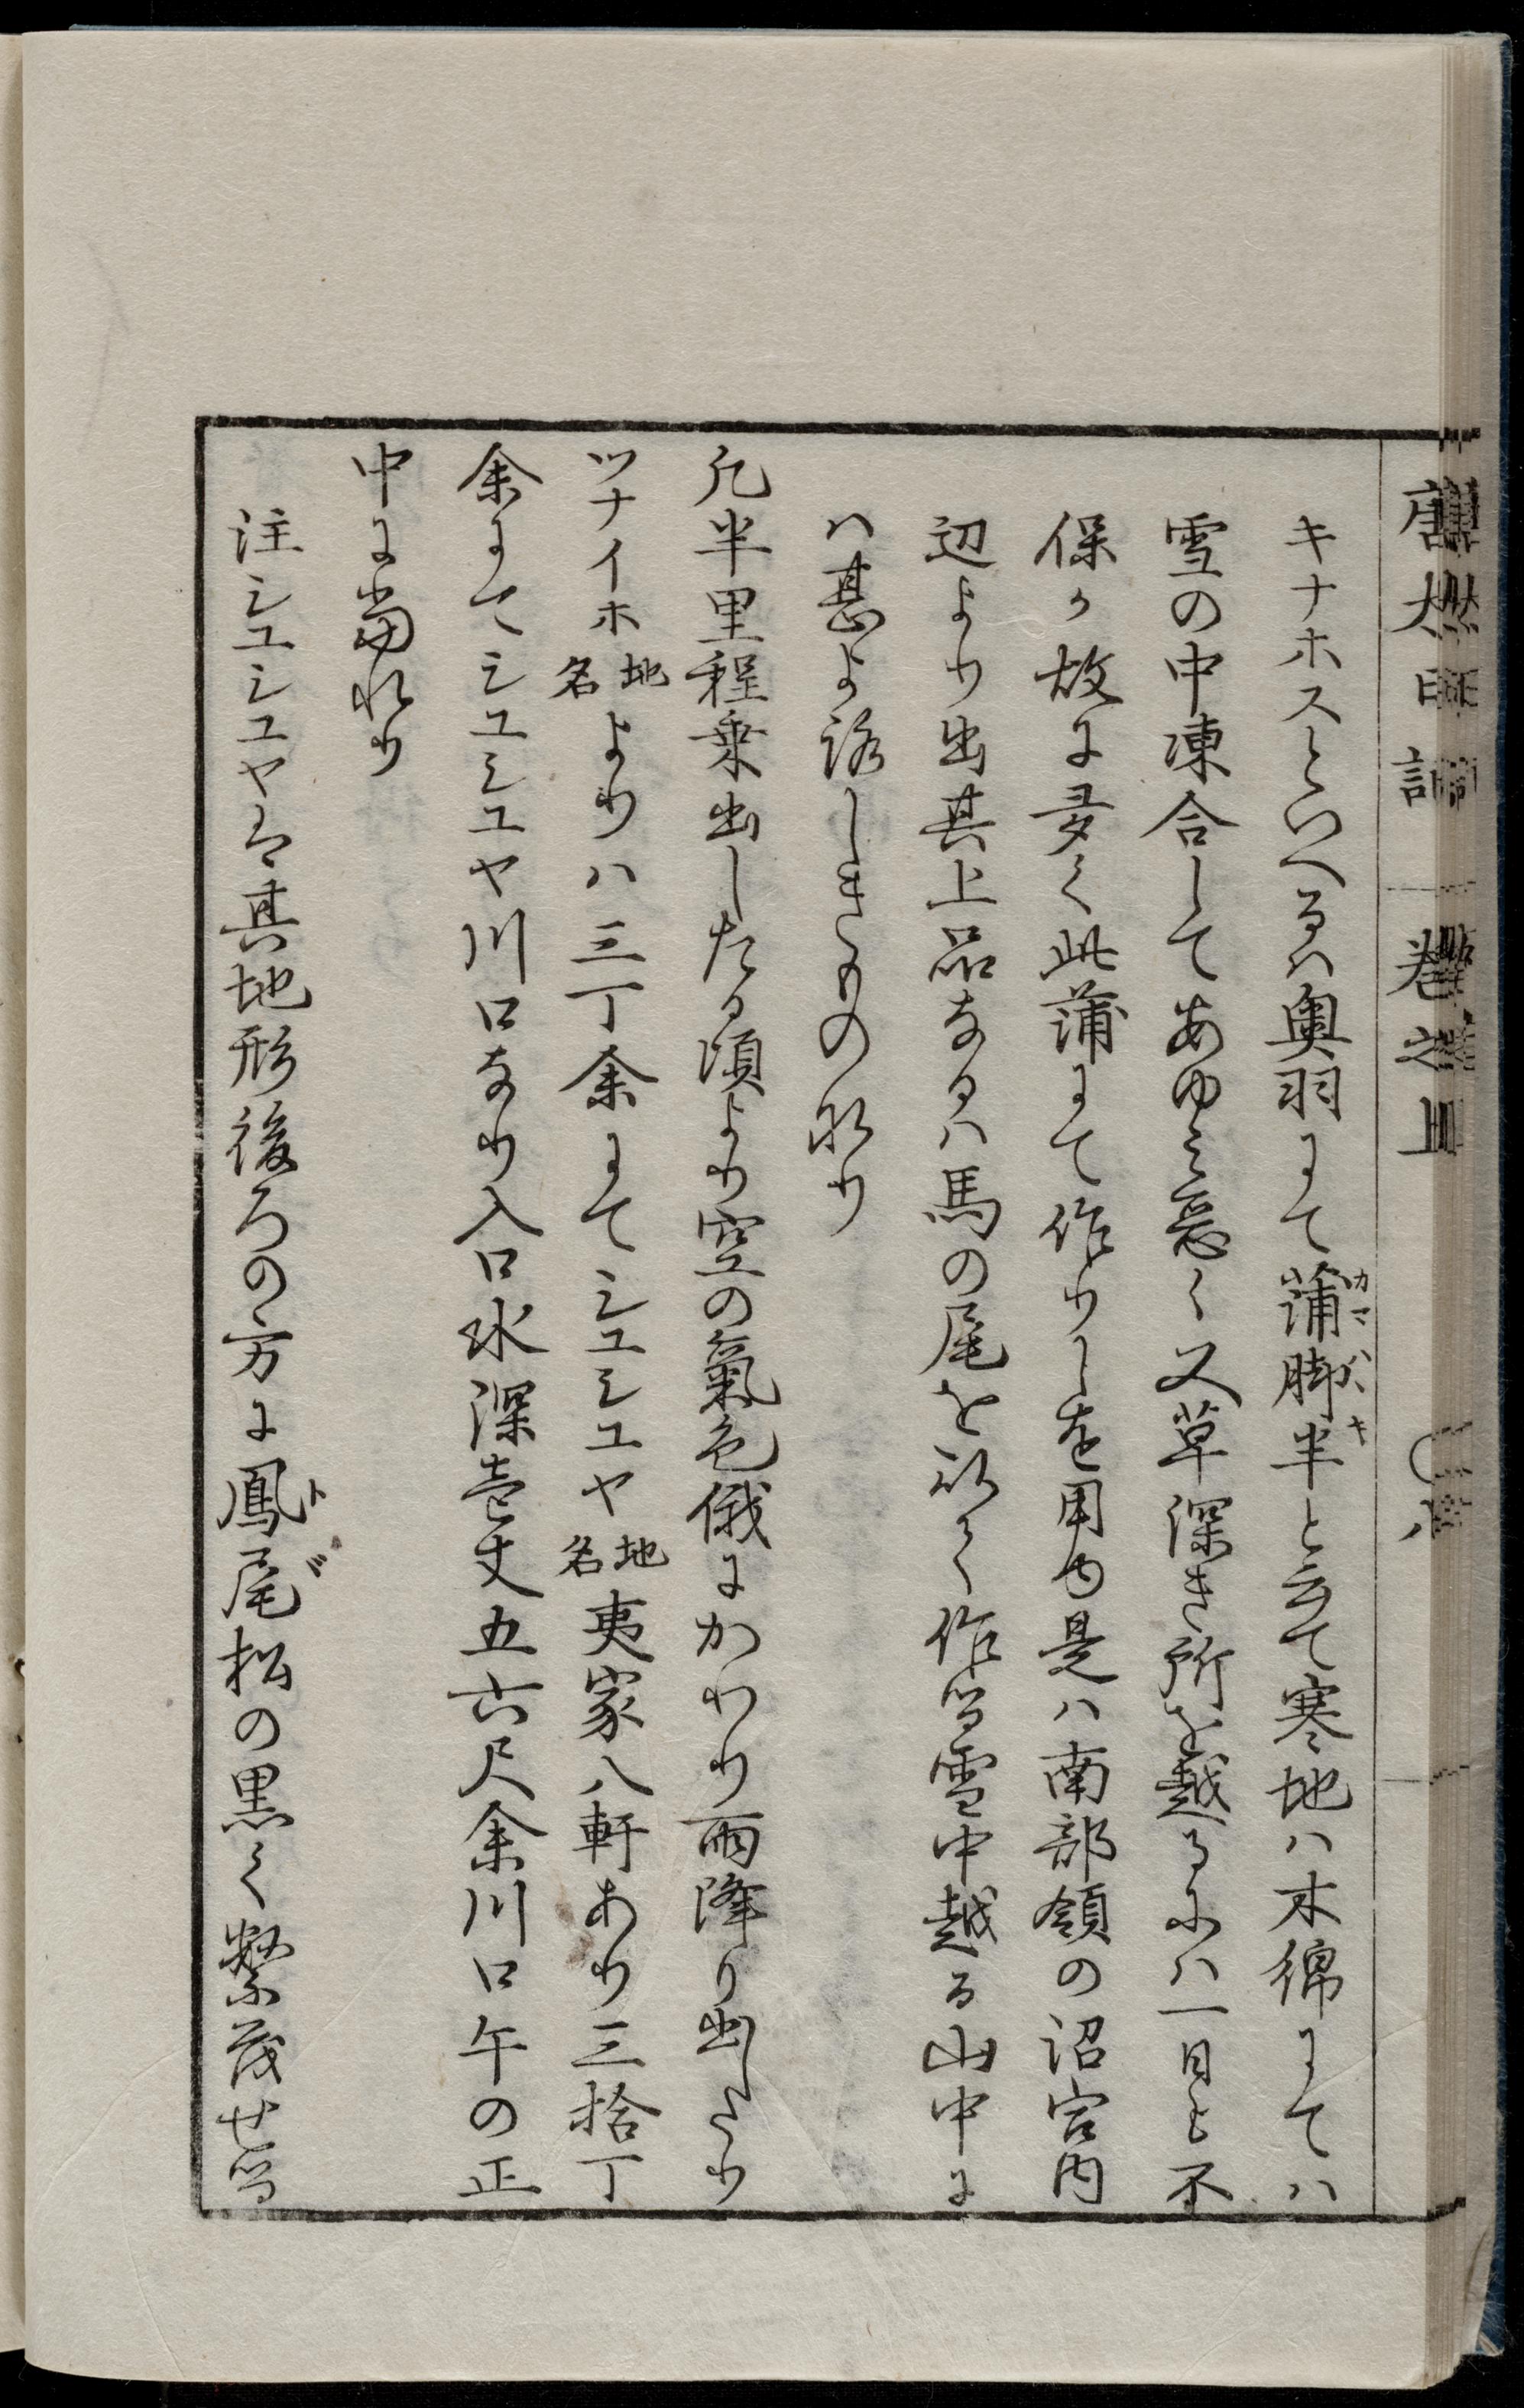 唐太日記 巻之上 〇八
キナホスといへるハ奥羽にて蒲脚半と云て寒地ハ木綿にてハ
カマハヽキ
雪の中凍合してあゆみ悪く又草深き所を越るにハ一日も不
保か故に多く此蒲にて作りしを用ゆ是ハ南部領の沼宮内
辺より出其上品なるハ馬の尾を以て作る雪中越る山中に
ハ甚よ路しきもの也り
凡半里程乗出したる頃より空の氣色俄にかわり雨降り出したり
ツナイホ地名よりハ三丁余にてシユシユヤ地名夷家八軒あり三拾丁
余にてシユシユヤ川口なり入口水深壱丈五六尺余川口午の正
中に当れり
注シユシユヤは其地形後ろの方に鳳尾松の黒く繁茂せる
トド